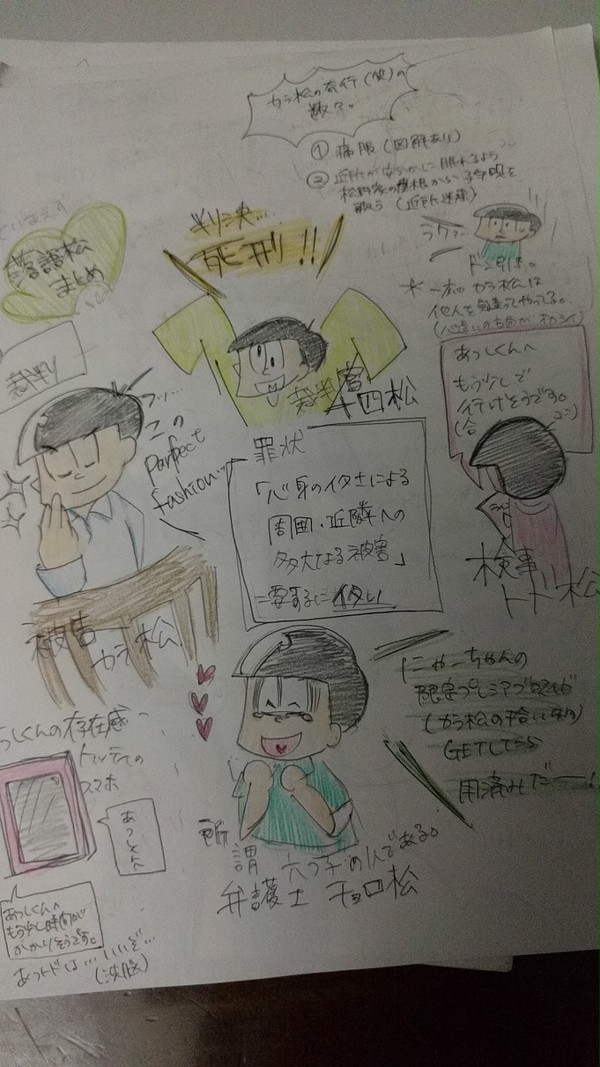 カラ松の奇行(笑)の
数々。
① 痛服(図解あり)
② 近所が安らかに眠れるよう
松野家の屋根から子守唄を
歌う(近所迷惑)
ドン引き。
カラ松は
他人を気遣ってやってる。
落語松
まとめ
判決…
死刑!!
裁判
裁判官
十四松
フッ…
この
Perfect
fashion…
罪状
「心身のイタさによる
周囲・近隣への
多大なる被害」
=要するにイタい
あっしくんへ
もう少しで
行けそうです。
検事
トド松
被告
カラ松
にゃーちゃんの
限定プレミアブロマイド
(カラ松の拾い物)
GETしてたら
用済みだー!
しくんの存在感
トッティの
スマホ
あっしくんへ
もう少し時間が
かかりそうです。
あつトドは…いいぞ…
(洗脳)
所謂 六つ子の1人である。
弁護士 チョロ松